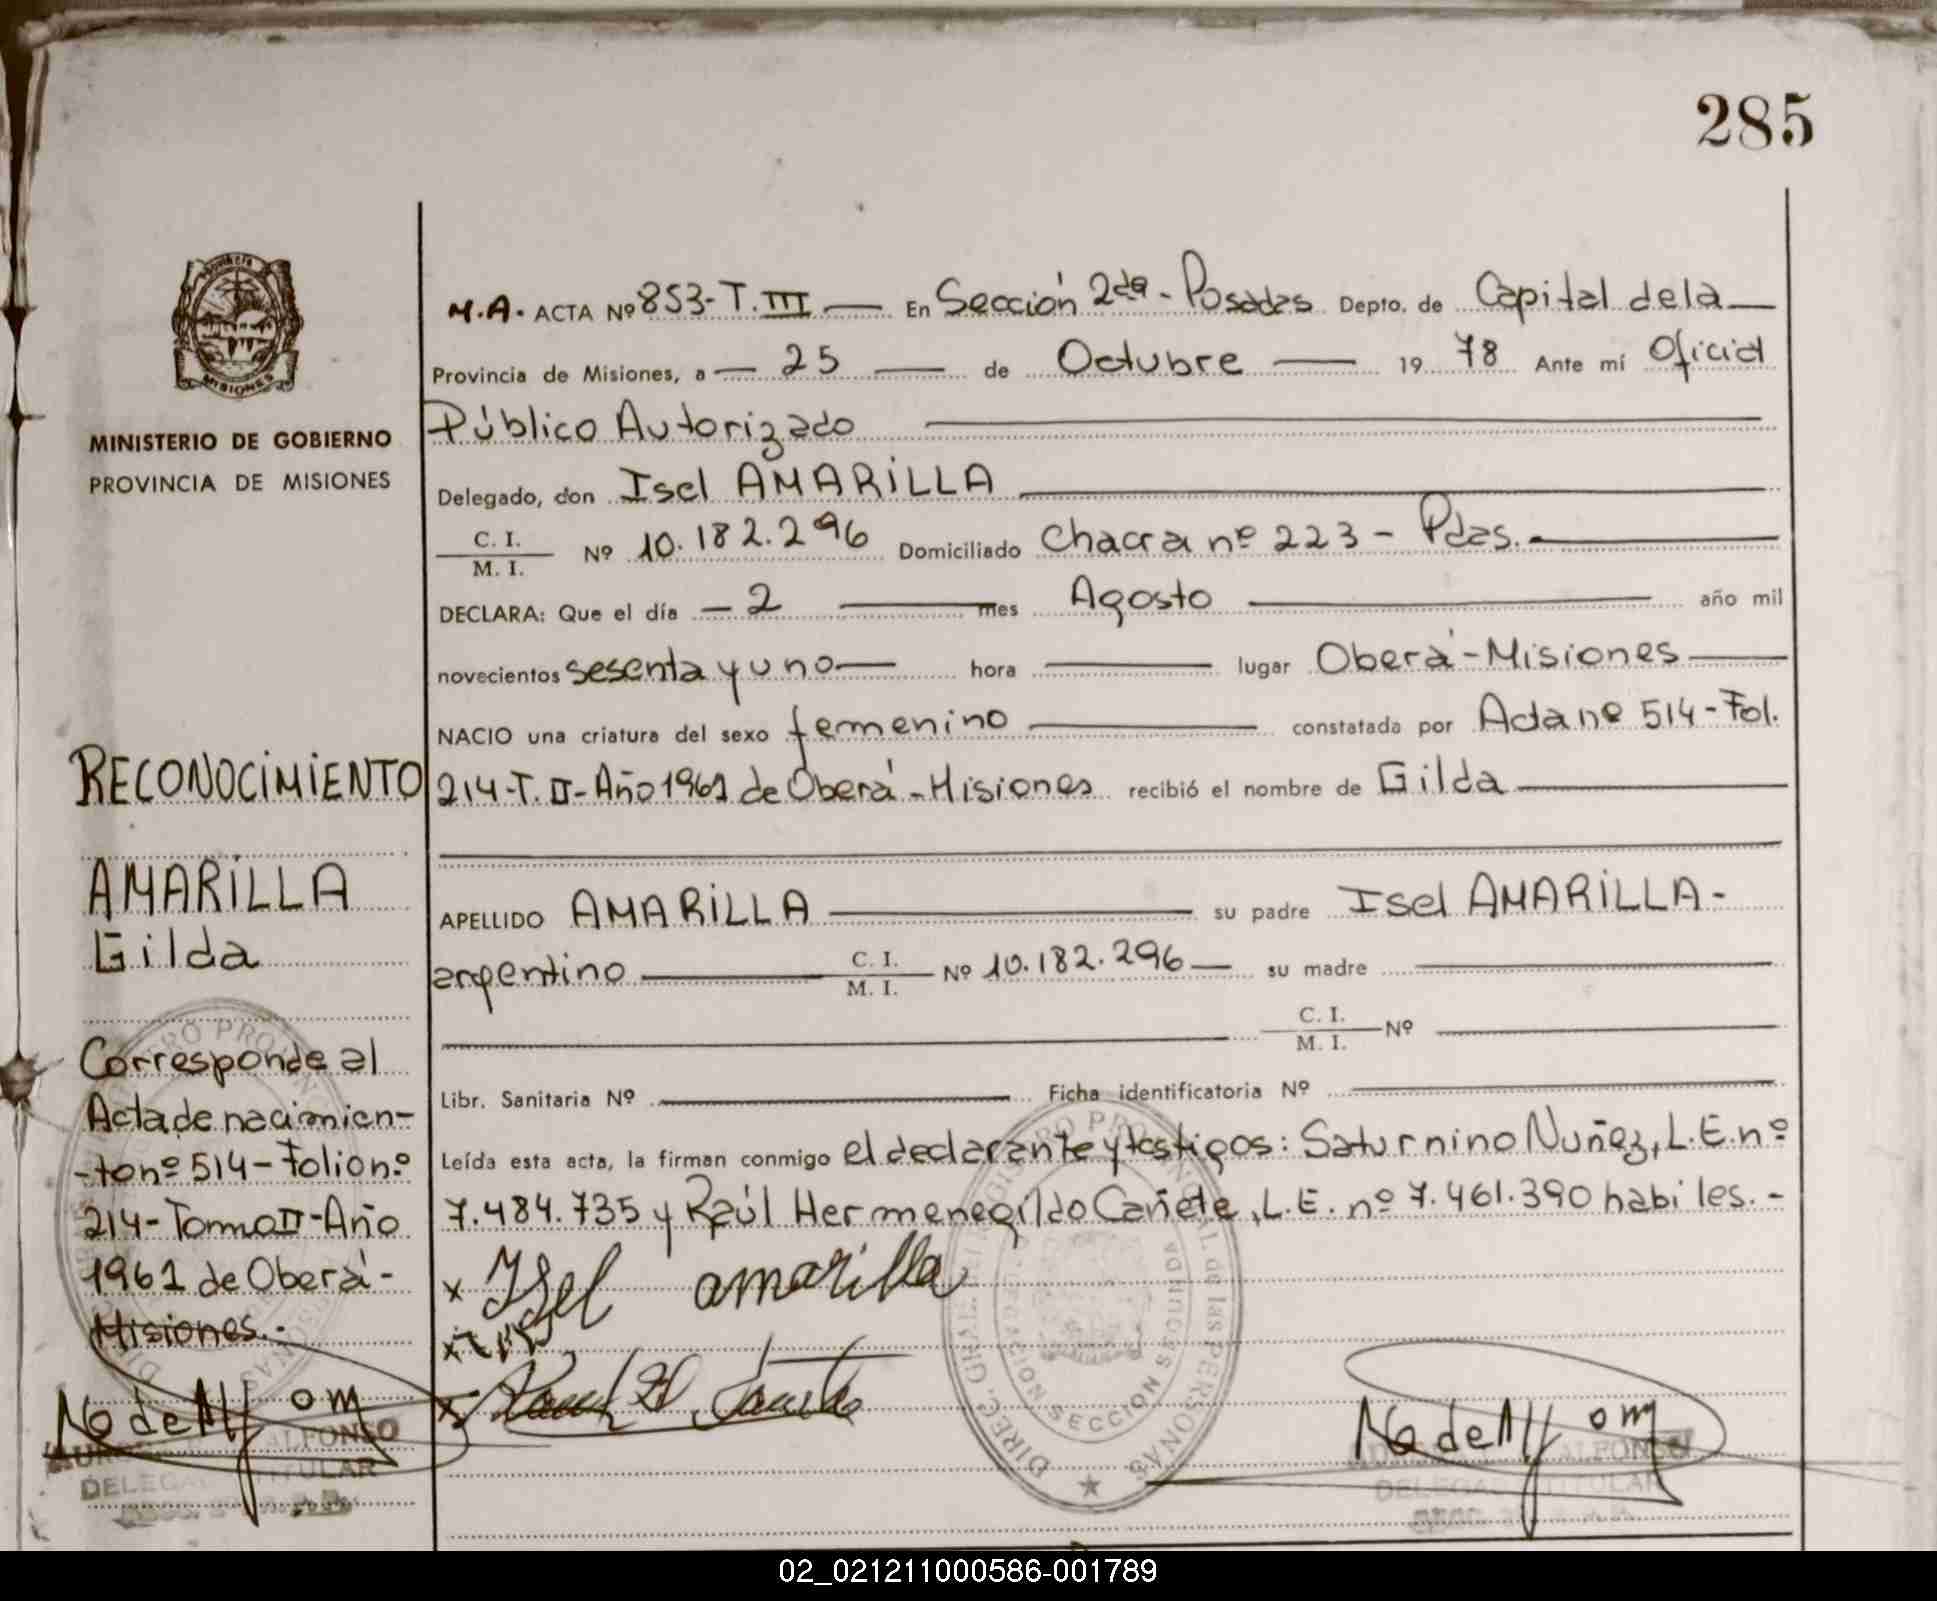 285
Provincia
MISIONES
MINISTERIO DE GOBIERNO
PROVINCIA DE MISIONES
RECONOCIMIENTO
AMARILLA
Gilda
Corresponde al
Acta de nacimien-
-to nº 514 - Folio nº
214 - Tomo II - Año
1961 de Oberá -
Misiones.-
ALFONSO
DELEGADO TITULAR
M.A. ACTA Nº 853-T.III — En Sección 2da - Posadas Depto. de Capital de la —
Provincia de Misiones, a — 25 — de Octubre — 19 78 Ante mí Oficial
Público Autorizado
Delegado, don Isel AMARILLA
C. I.
M. I. Nº 10.182.296 Domiciliado Chacra nº 223 - Pdas.
DECLARA: Que el día — 2 — mes Agosto — año mil
novecientos sesenta y uno — hora — lugar Oberá - Misiones —
NACIO una criatura del sexo femenino — constatada por Acta nº 514 - Fol.
214 - T. II - Año 1961 de Oberá - Misiones recibió el nombre de Gilda —
APELLIDO AMARILLA — su padre Isel AMARILLA -
argentino — C. I. M. I. Nº 10.182.296 — su madre —
C. I. M. I. Nº —
Libr. Sanitaria Nº — Ficha identificatoria Nº —
Leída esta acta, la firman conmigo el declarante y testigos: Saturnino Nuñez, L.E. nº
7.484.735 y Raúl Hermenegildo Cañete, L.E. nº 7.461.390 habiles. -
x Isel amarilla
x
x
DIREC. GRAL. DEL REGISTRO PROVINCIAL de las PERSONAS
SECCION SEGUNDA
ALFONSO
DELEGADO TITULAR
02_021211000586-001789